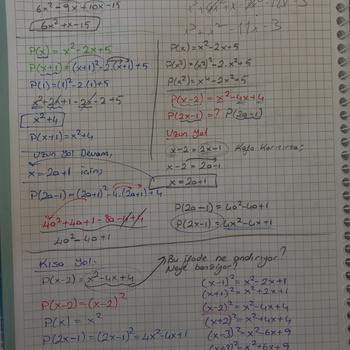 6x²-9x+10x-15
6x²+x-15
P(x)=x²-2x+5
P(x+1)=(x+1)²-2.(x+1)+5
P(1)=(1)²-2.(1)+5
x²+2x+1-2x-2+5
x²+4
P(x+1)=x²+4
Uzun yol Devam,
x=2a+1 için;
P(2a-1)=(2a+1)²-4.(2a+1)+4
4a²+4a+1-8a-4+4
4a²-4a+1
P(x)=x²-2x+5
P(x²)=(x²)²-2.x²+5
P(x²)=x⁴-2x²+5
P(x-2)=x²-4x+4
P(2x-1)=? P(2a-1)
Uzun Yol
x-2=2x-1
x-2=2a-1
x=2a+1
P(2a-1)=4a²-4a+1
P(2x-1)=4x²-4x+1
Kısa Yol.
P(x-2)=x²-4x+4
P(x-2)=(x-2)²
P(x)=x²
P(2x-1)=(2x-1)²=4x²-4x+1
Bu ifade ne andırıyor?
Neye benziyor?
(x-1)²=x²-2x+1
(x+1)²=x²+2x+1
(x-2)²=x²-4x+4
(x+2)²=x²+4x+4
(x-3)²=x²-6x+9
(x+3)²=x²+6x+9